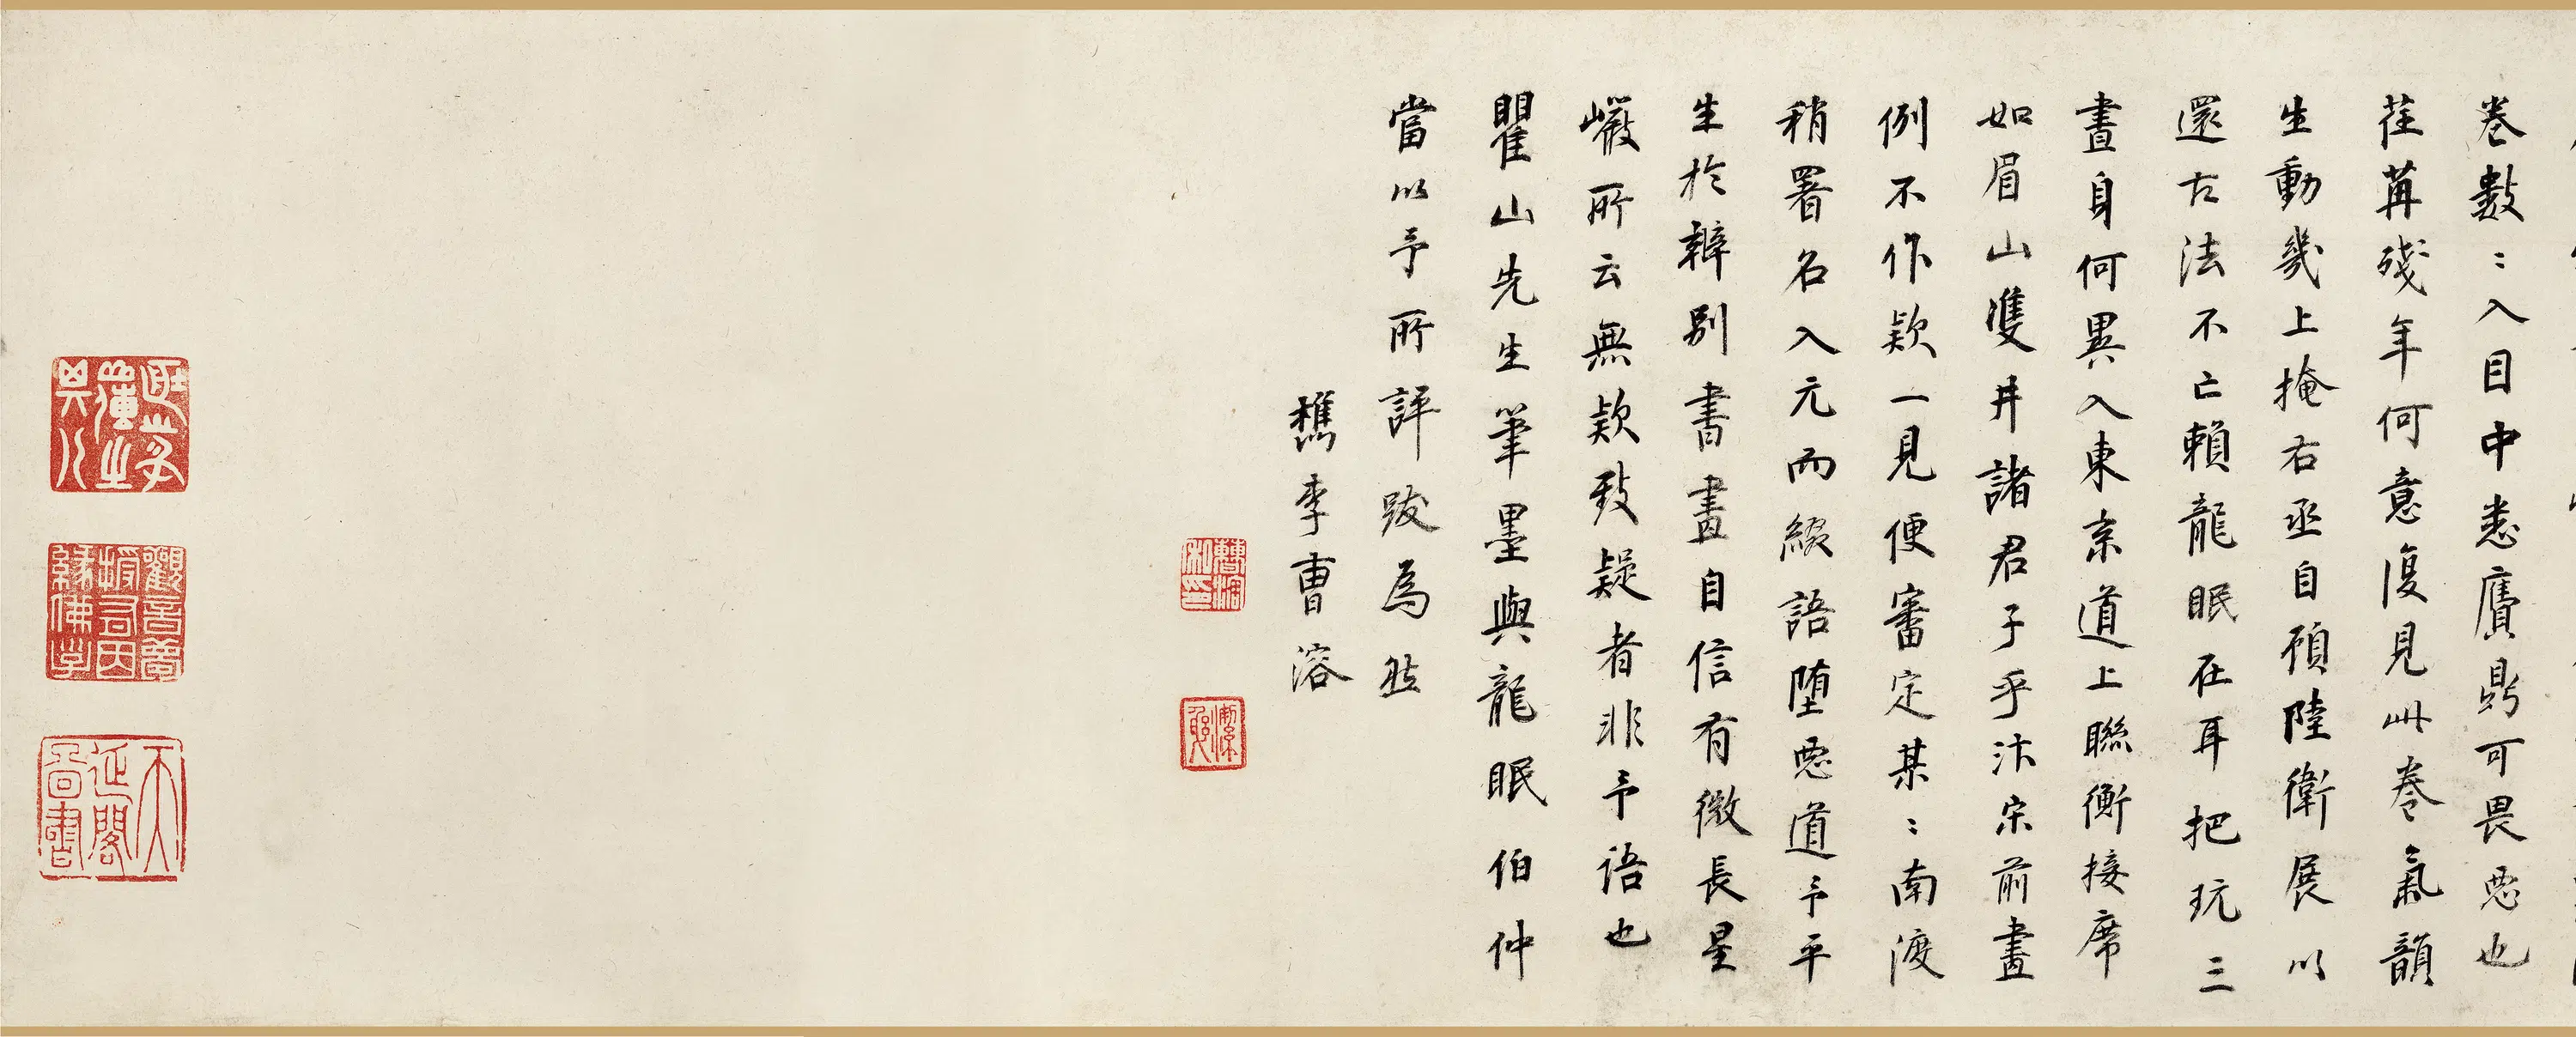 卷數〻入目中悉贗鼎可畏惡也
荏苒殘年何意復見此卷氣韻
生動幾上掩右丞自顧陸衛展以
還古法不亡賴龍眠在耳把玩三
晝身何異入東京道上聯衡接席
如眉山雙井諸君子乎汴宋前畫
例不作欵一見便審定某〻南渡
稍署名入元而綴語墮惡道予平
生於辨別書畫自信有微長星
巖所云無欵致疑者非予語也
瞿山先生筆墨與龍眠伯仲
當以予所評跋為然
檇李曹溶
天延閣圖書